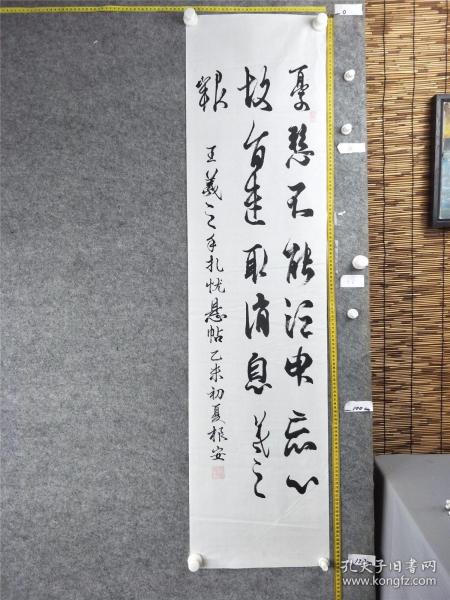 憂懸不能須臾忘心
故旨遣取消息羲之
報
王羲之手札忧悬帖乙未初夏根安
孔夫子旧书网
www.kongfz.com